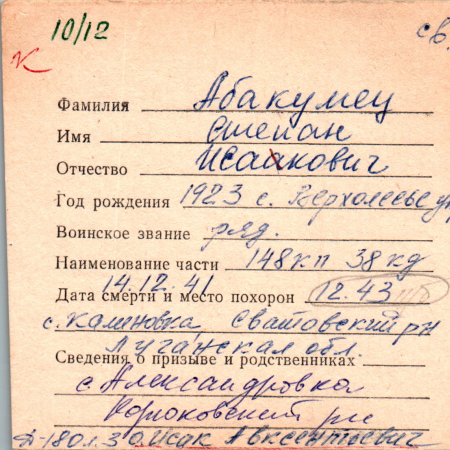 10/12
св.
К
Фамилия Абакумец
Имя Степан
Отчество Исаакович
Год рождения 1923 с. Верхолесье
Воинское звание ряд.
Наименование части 148 кп 38 кд
14.12.41
Дата смерти и место похорон 12.43
с. Каменовка, Сватовский рн
Луганская обл
Сведения о призыве и родственниках
с. Александровка
Корюковский рн
О. Исак Авксентьевич